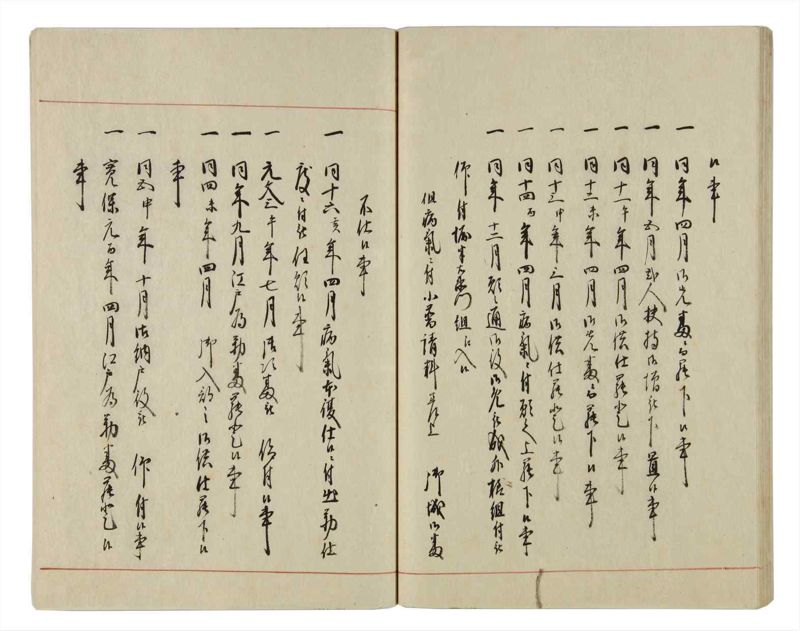 候事
一 同年四月御先番ニ而罷下候事
一 同年五月弐人扶持御増被下置候事
一 同十一午年四月御供仕罷登候事
一 同十二未年四月御先番ニ而罷下候事
一 同十三申年三月御供仕罷登候事
一 同十四酉年四月病気ニ付願之上罷下候事
一 同年十二月願之通御役御免被成外様組付被
仰付 組江入候
但病気ニ付小普請料 御城御番
不仕候事
一 同十六亥年四月病気本復仕候ニ付出勤仕
度ニ付被任願候事
一 元文三午年七月 番被 仰付候事
一 同年九月江戸為勤番罷登候事
一 同四未年四月 御入部之御供仕罷下候
事
一 同五申年十月御納戸役被 仰付候事
一 寛保元酉年四月江戸為勤番罷登候
事